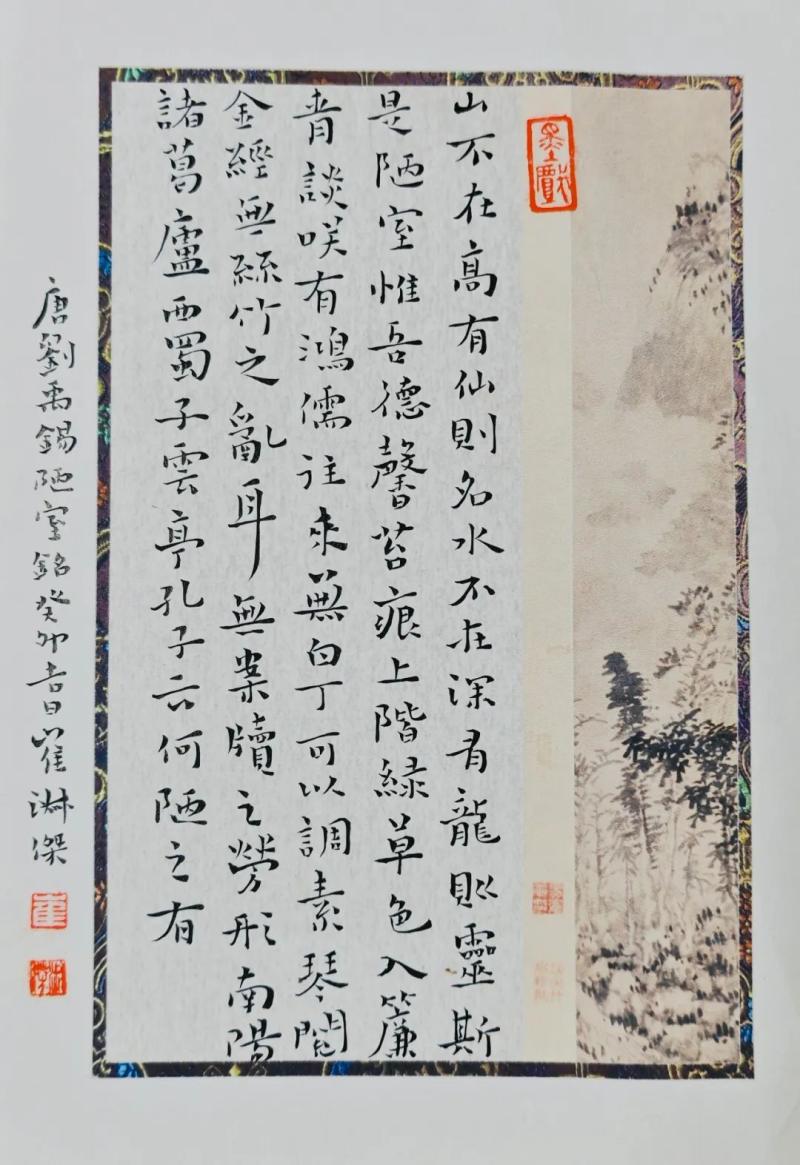 墨戲
山不在高有仙則名水不在深有龍則靈斯
是陋室惟吾德馨苔痕上階緑草色入簾
青談咲有鴻儒往来無白丁可以調素琴閲
金經無絲竹之亂耳無案牘之勞形南陽
諸葛廬西蜀子雲亭孔子云何陋之有
唐劉禹錫陋室銘癸卯吉日崔淋傑